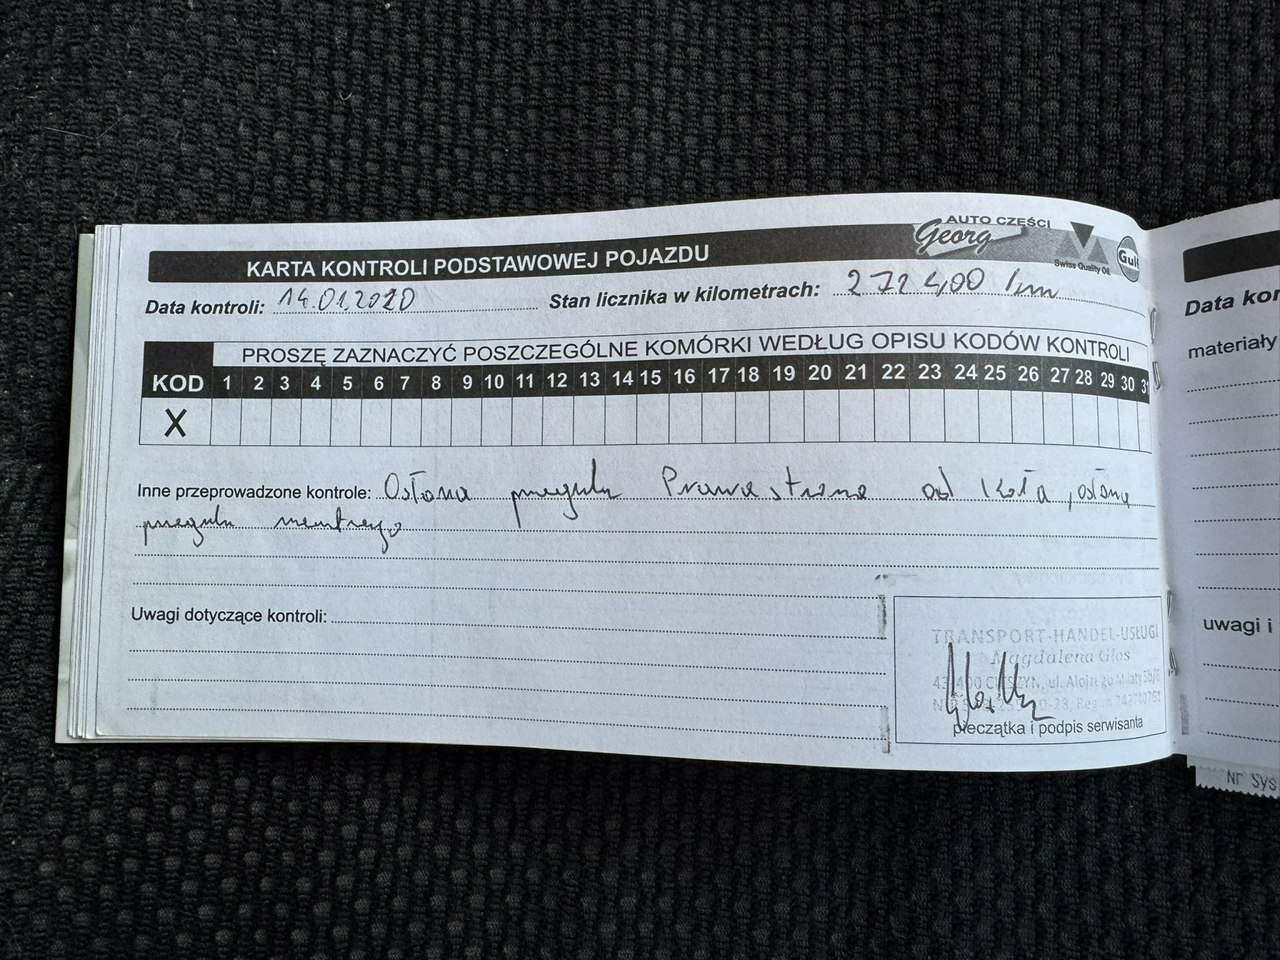 AUTO CZĘŚCI
Georg
Swiss Quality Oil
Gulf
KARTA KONTROLI PODSTAWOWEJ POJAZDU
Data kontroli: 14.01.2020 Stan licznika w kilometrach: 272 400 km
PROSZĘ ZAZNACZYĆ POSZCZEGÓLNE KOMÓRKI WEDŁUG OPISU KODÓW KONTROLI
KOD 1 2 3 4 5 6 7 8 9 10 11 12 13 14 15 16 17 18 19 20 21 22 23 24 25 26 27 28 29 30 31
X
Inne przeprowadzone kontrole: Osłona przegubu Prawa strona od koła, osłona
przegubu wewnętrznego
Uwagi dotyczące kontroli:
TRANSPORT-HANDEL-USŁUGI
Magdalena Głos
pieczątka i podpis serwisanta
Data kon
materiały
uwagi i
Nr Sys